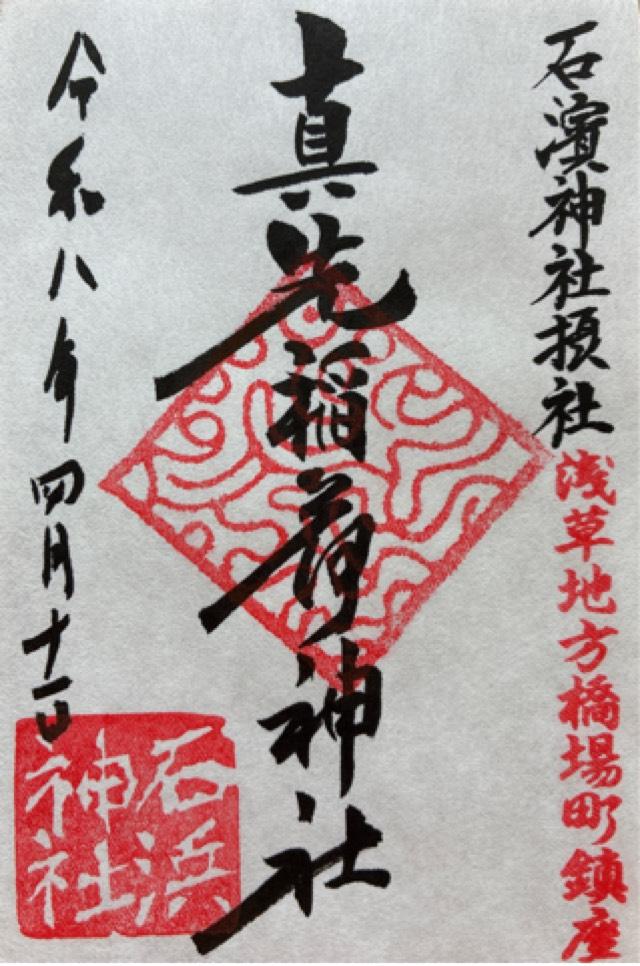 石濱神社摂社
浅草地方橋場町鎮座
真先稲荷神社
令和八年四月十一日
石浜
神社